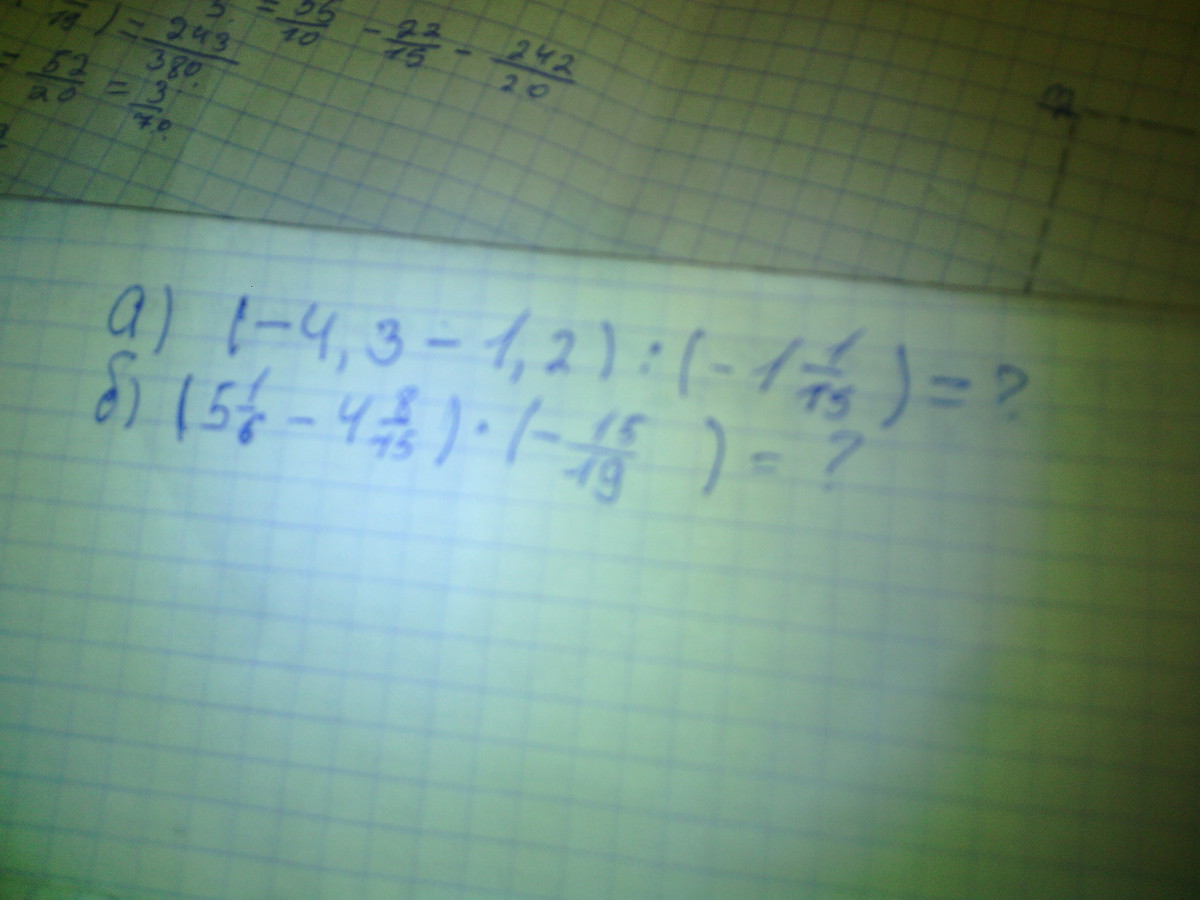 19) = 243/380
= 56/10 - 22/15 - 242/20
= 52/20 = 3/70
а) (-4,3 - 1,2) : (-1 1/15) = ?
б) (5 1/6 - 4 8/15) · (- 15/19) = ?